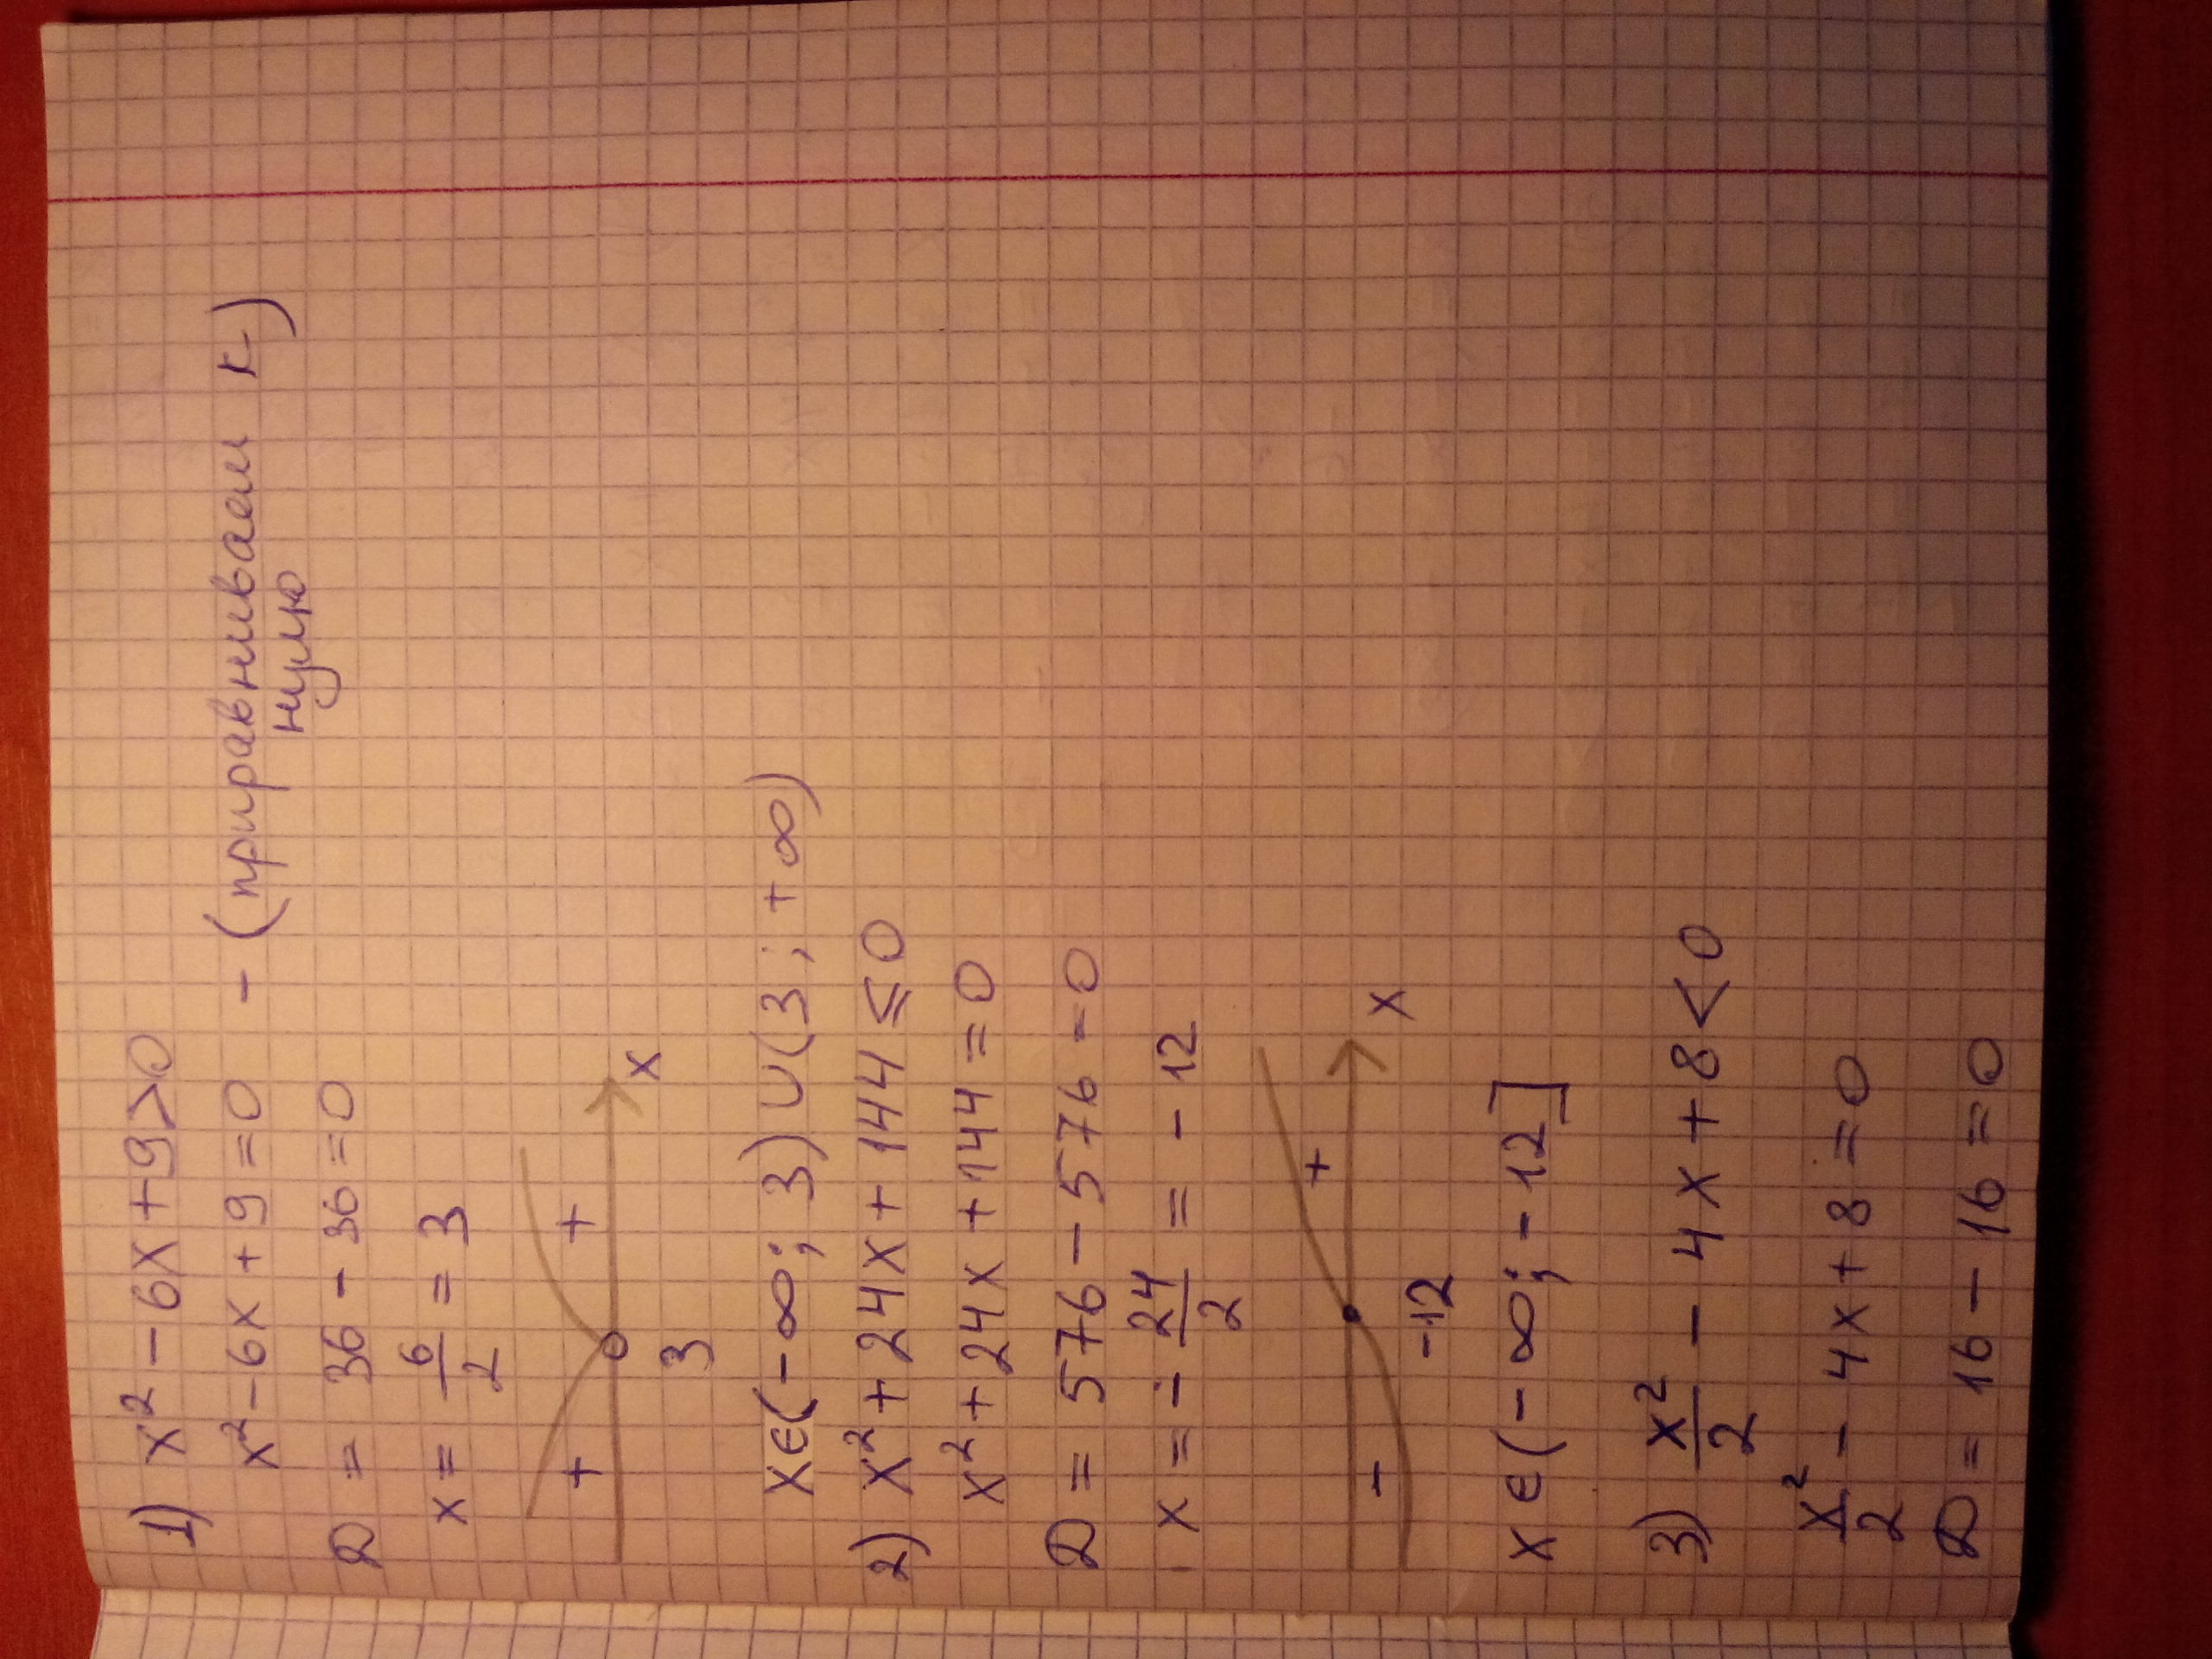 1) x² - 6x + 9 > 0
x² - 6x + 9 = 0 - (приравниваем к
нулю)
D = 36 - 36 = 0
x = 6/2 = 3
+ +
3 x
x ∈ (-∞; 3) ∪ (3; +∞)
2) x² + 24x + 144 ≤ 0
x² + 24x + 144 = 0
D = 576 - 576 = 0
x = - 24/2 = - 12
- +
-12 x
x ∈ (-∞; -12]
3) x²/2 - 4x + 8 < 0
x²/2 - 4x + 8 = 0
D = 16 - 16 = 0